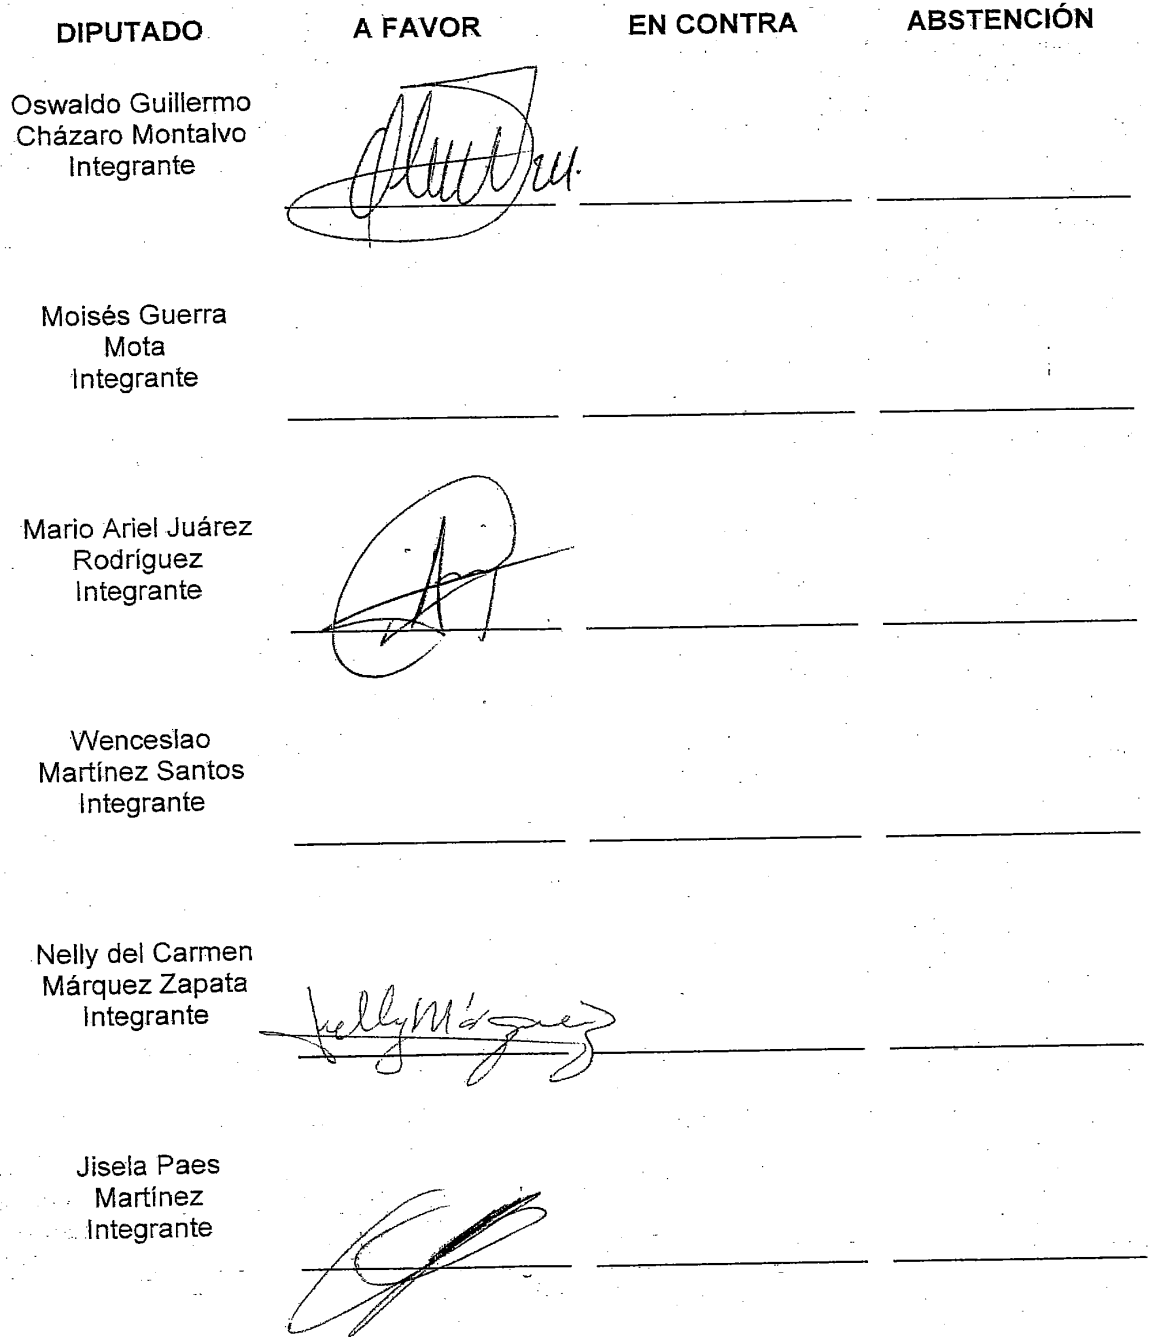 DIPUTADO A FAVOR EN CONTRA ABSTENCIÓN
Oswaldo Guillermo
Cházaro Montalvo
Integrante
Moisés Guerra
Mota
Integrante
Mario Ariel Juárez
Rodríguez
Integrante
Wenceslao
Martínez Santos
Integrante
Nelly del Carmen
Márquez Zapata
Integrante
Nelly Márquez
Jisela Paes
Martínez
Integrante